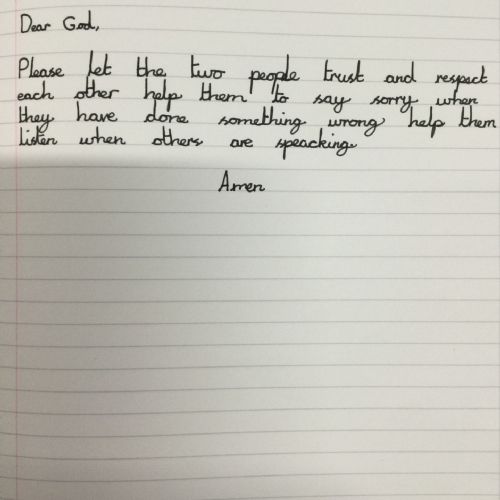 Dear God,
Please let the two people trust and respect
each other help them to say sorry when
they have done something wrong help them
listen when others are speacking
Amen